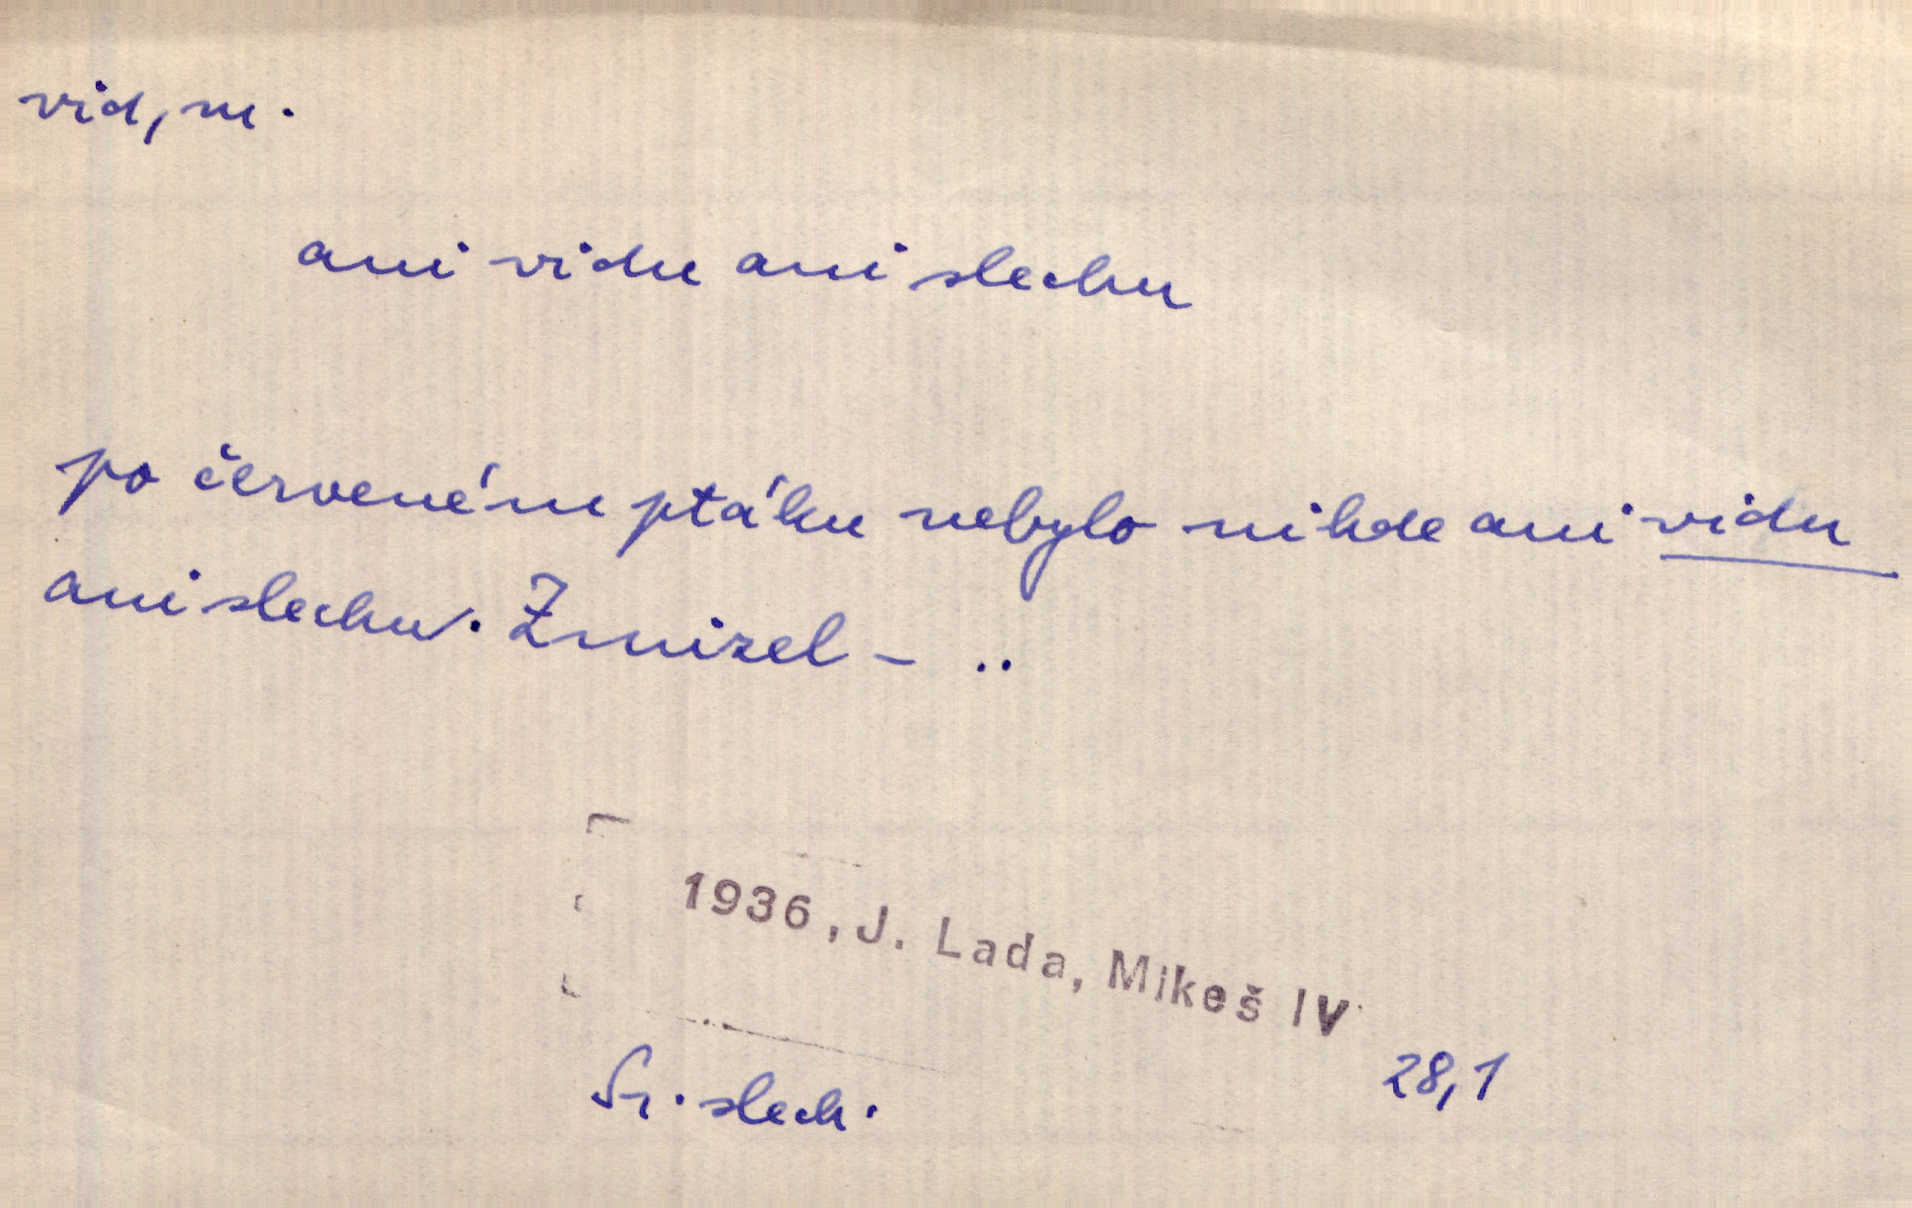 vid, m.
ani vidu ani slechu
po červeném ptáku nebylo nikde ani vidu
ani slechu. Zmizel – ..
1936, J. Lada, Mikeš IV
28,1
Sr. slech.